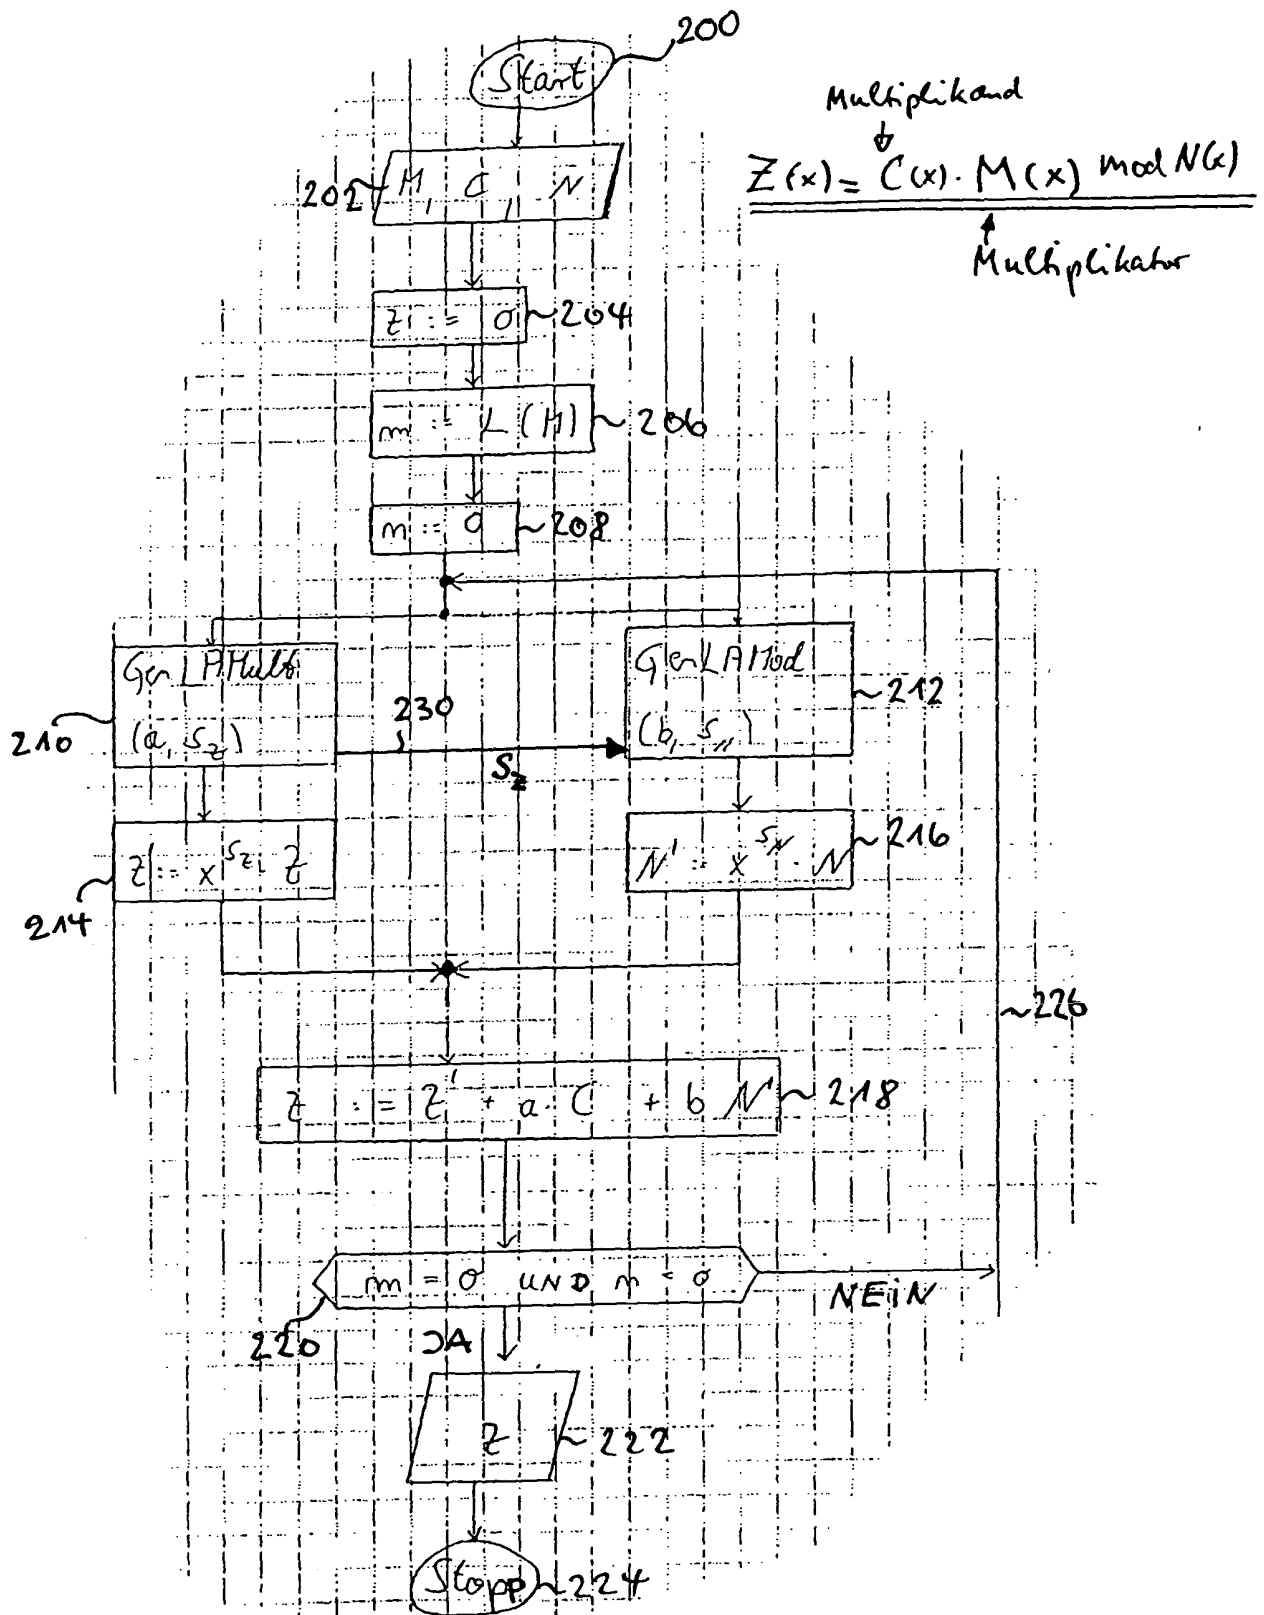 200
Start
Multiplikand
Z(x) = C(x) · M(x) mod N(x)
Multiplikator
202 M, C, N
Z := 0 204
m := L(M) 206
n := 0 208
GenLAMult
(a, s_z)
210
230
S_z
GenLAMod
(b, s_N)
212
Z' := x^{s_z} · Z
214
N' := x^{s_N} · N
216
226
Z := Z' + a · C + b N' 218
m = 0 UND n = 0
220
NEIN
JA
Z 222
Stopp 224